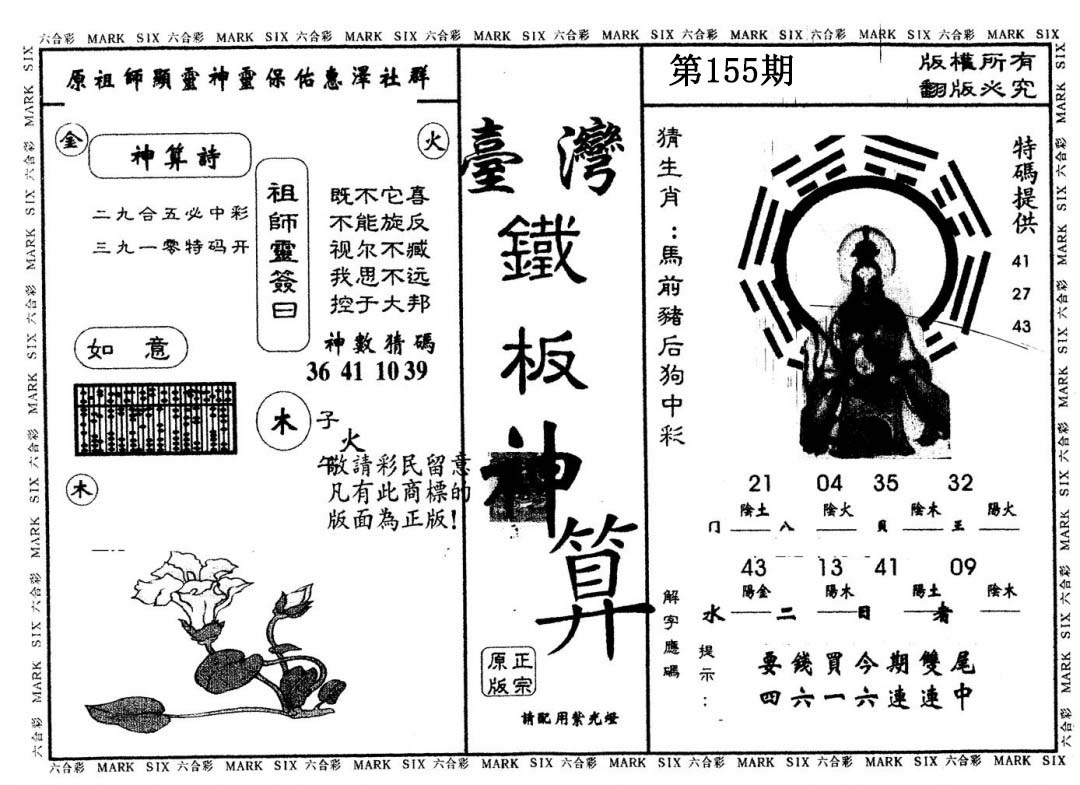 六合彩 MARK SIX 六合彩 MARK SIX 六合彩 MARK SIX 六合彩 MARK SIX 六合彩 MARK SIX 六合彩 MARK SIX 六合彩 MARK SIX 六合彩 MARK SIX
原祖師顯靈神靈保佑惠澤社群
金
火
神算詩
二九合五必中彩
三九一零特码开
祖師靈簽曰
既不它喜
不能旋反
视尔不臧
我思不远
控于大邦
神數猜碼
36 41 10 39
如意
木
子
火
午
敬請彩民留意
凡有此商標的
版面為正版!
木
臺灣
鐵
板
神
算
原正
版宗
請配用紫光燈
第155期
版權所有
翻版必究
猜生肖:馬前豬后狗中彩
特碼提供
41
27
43
21 04 35 32
陰土 陰火 陰木 陽火
门 八 貝 王
43 13 41 09
陽金 陽木 陽土 陰木
水 二 日 者
解字應碼
提示:
要錢買今期雙尾
四六一六連連中
六合彩 MARK SIX 六合彩 MARK SIX 六合彩 MARK SIX 六合彩 MARK SIX 六合彩 MARK SIX 六合彩 MARK SIX 六合彩 MARK SIX 六合彩 MARK SIX